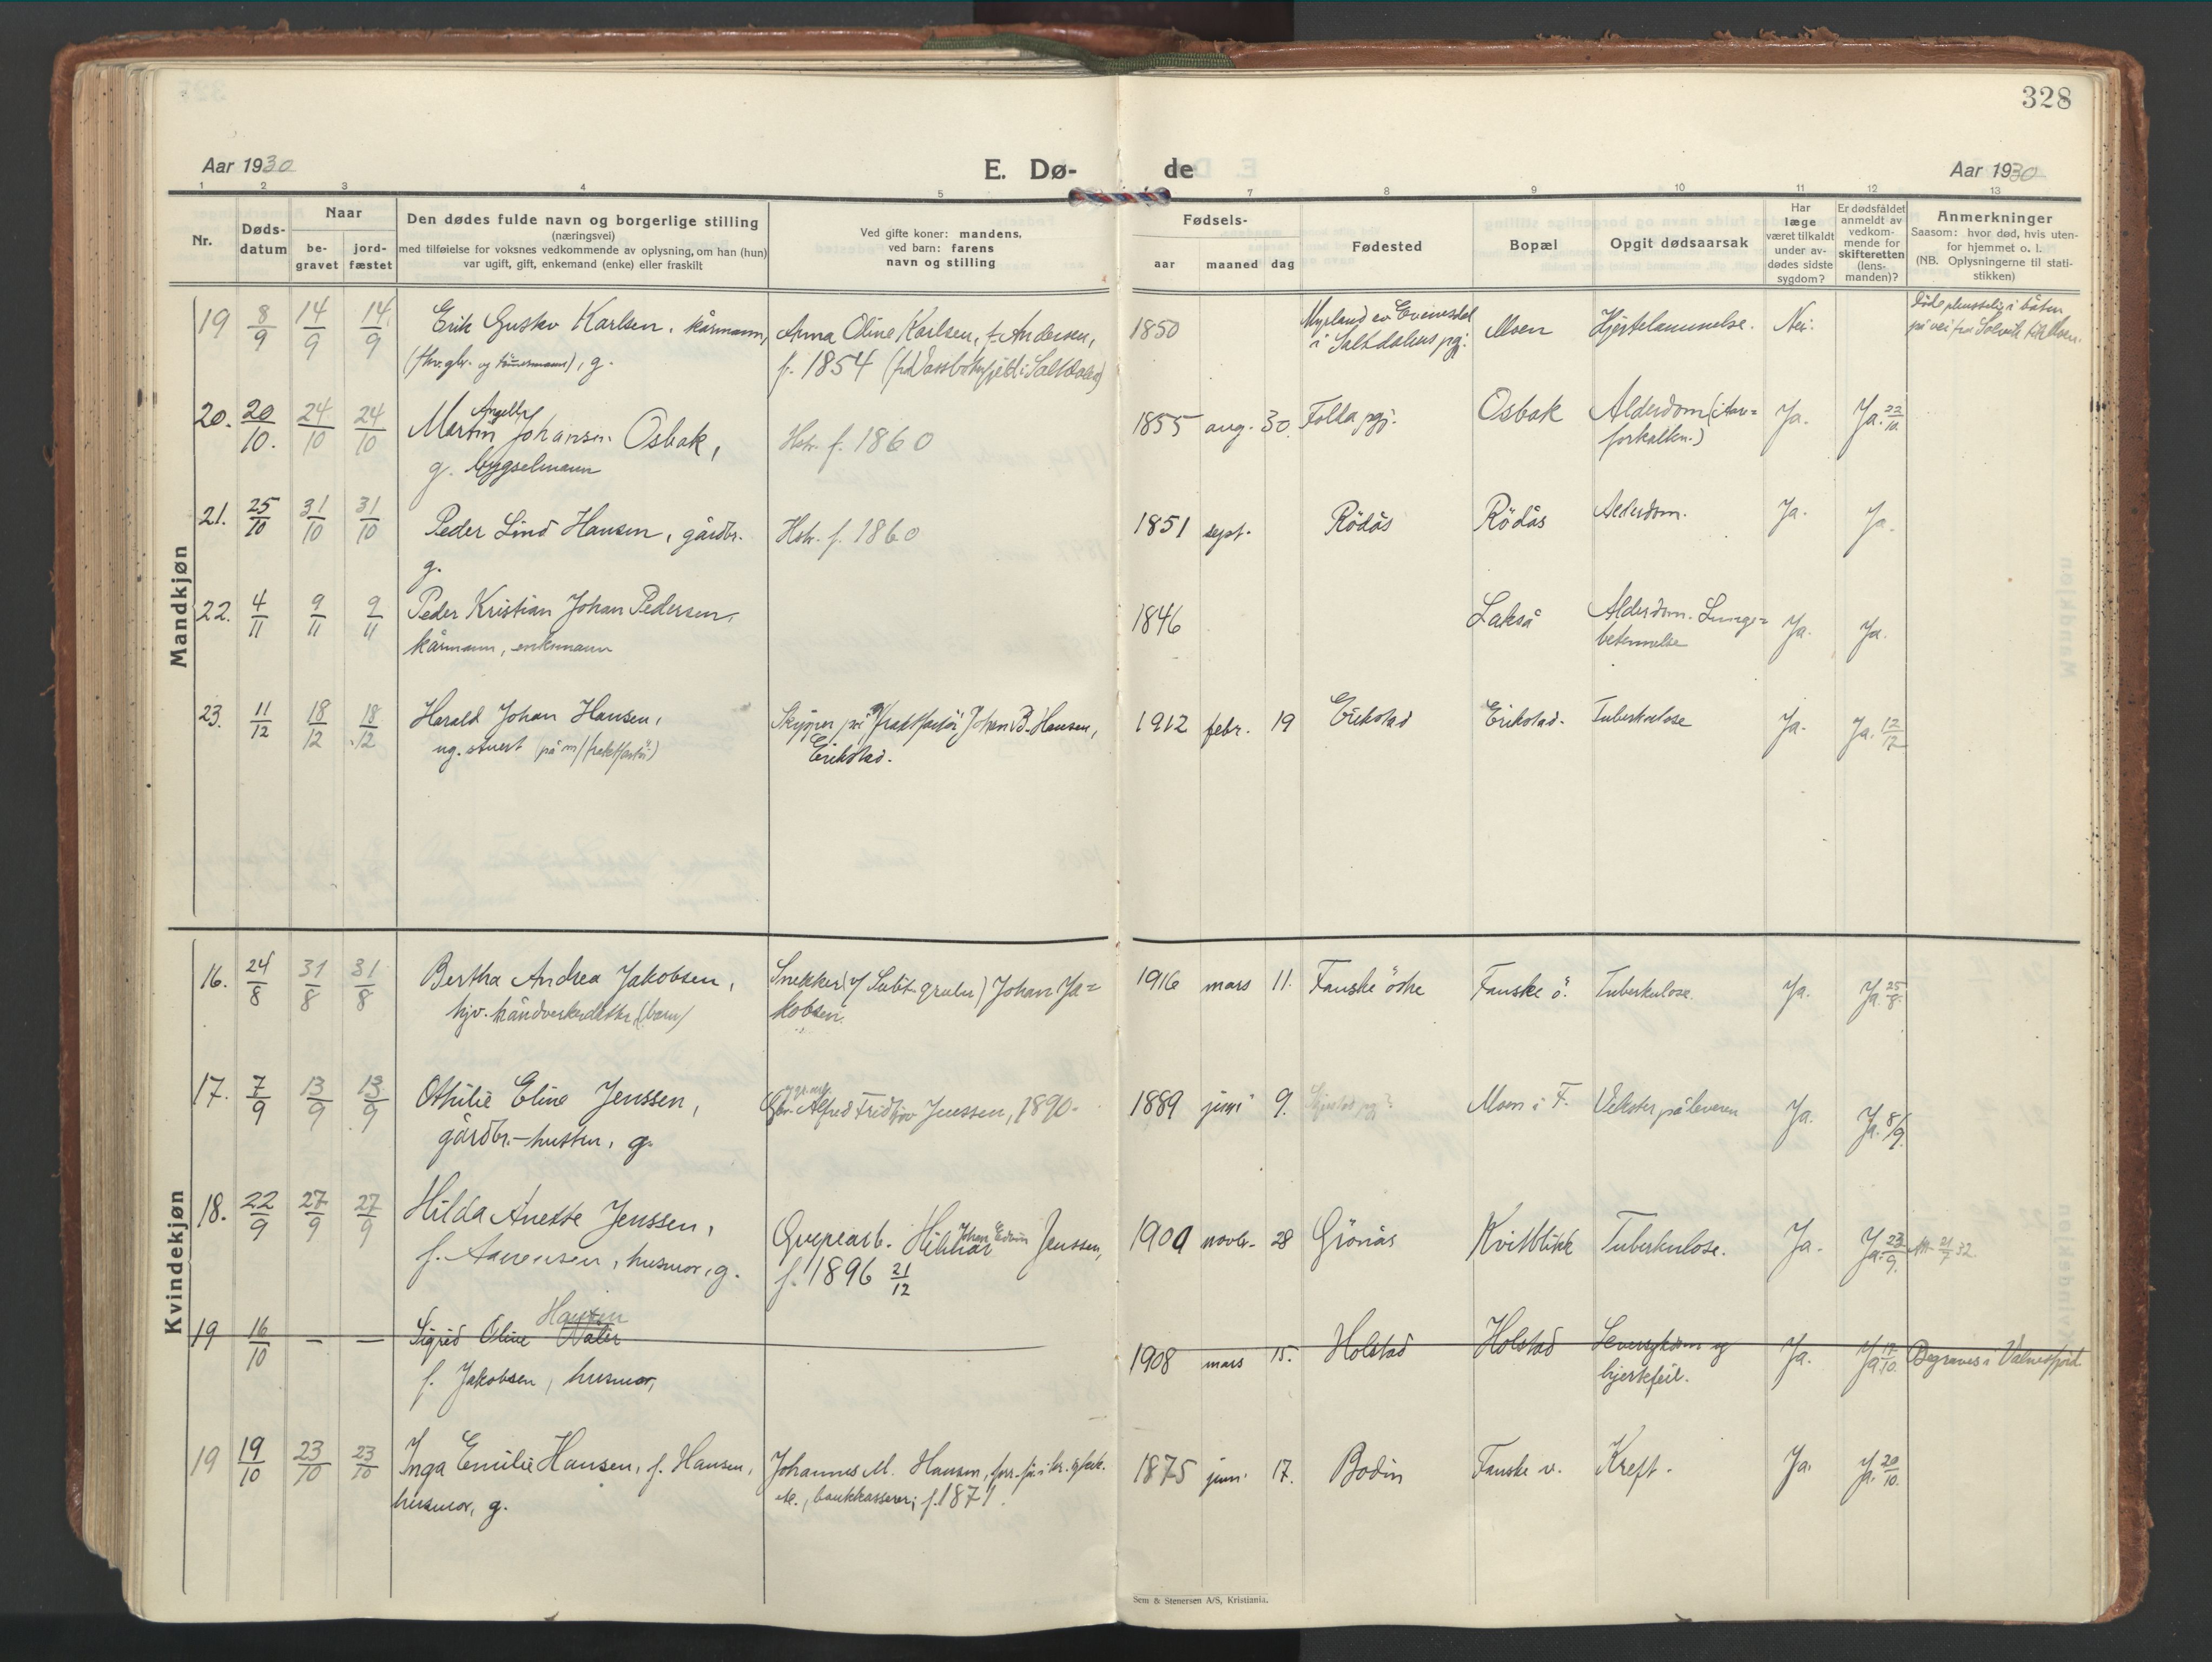 328
Aar 1930
E. Dø-
de
Aar 1930
1 2 3 4 5 7 8 9 10 11 12 13
Nr.
Døds-
datum
Naar
be-
gravet
jord-
fæstet
Den dødes fulde navn og borgerlige stilling
(næringsvei)
med tilføielse for voksnes vedkommende av oplysning, om han (hun)
var ugift, gift, enkemand (enke) eller fraskilt
Ved gifte koner: mandens,
ved barn: farens
navn og stilling
Fødsels-
aar maaned dag
Fødested
Bopæl
Opgit dødsaarsak
Har
læge
været tilkaldt
under av-
dødes sidste
sygdom?
Er dødsfaldet
anmeldt av
vedkom-
mende for
skifteretten
(lens-
manden)?
Anmerkninger
Saasom: hvor død, hvis uten-
for hjemmet o. l.
(NB. Oplysningerne til stati-
stikken)
Mandkjøn
19 8/9 14/9 14/9 Erik Gustav Karlsen, kårmann, Anna Oline Karlsen, f. Andersen, 1850 Myrland av Evenesdal Moen Hjertelammelse. Nei. Døde plusselig i båten
(fhv. gbr. og tömmermann), g. f. 1854 i Saltdalens pgj. på vei fra Solvik til Moen.
20. 20/10. 24/10 24/10 Martin Angell Johansen Osbak, Hstr. f. 1860 1855 aug. 30. Folda pgj. Osbak Alderdom (Åre= Ja. Ja. 22/10.
g. bygselmann forkalkn.)
21. 25/10 31/10 31/10 Peder Lind Hansen, gårdbr. Hstr. f. 1860 1851 sept. Rödås Rödås Alderdom. Ja. Ja.
g.
22. 4/11 9/11 9/11 Peder Kristian Johan Pedersen, 1846 Lakså Alderdom. Lunge= Ja. Ja.
kårmann, enkemann betennelse
23. 11/12 18/12 18/12 Harald Johan Hansen, Skipper på fraktfartöi Johan B. Hansen, 1912 febr. 19 Erikstad Erikstad. Tuberkulose Ja. Ja. 12/12
ug. stuert (på m/fraktfartöi) Erikstad.
Kvindekjøn
16. 24/8 31/8 31/8 Bertha Andrea Jakobsen, Snekker (v/ Sulit. gruber) Johan Ja= 1916 mars 11. Fauske östre Fauske ö. Tuberkulose. Ja. Ja. 25/8.
hjv. håndverkerdatter, (barn) kobsen.
17. 7/9 13/9 13/9 Othilie Eline Jenssen, Gbr. Alfred Fridtjov Jenssen, 1890. 1889 juni 9. Moen i F. Vekster på leveren Ja. Ja. 8/9.
gårdbr.-hustru, g.
18. 22/9 27/9 27/9 Hilda Anette Jenssen, Gruvearb. Hilmar Johan Edvin Jenssen, 1900 novbr. 28 Grönås Kvitblikk Tuberkulose. Ja. Ja. 23/9. Att. 21/7 32.
f. Aarensen, husmor, g. f. 1896 21/12
19 16/10 — — Sigrid Oline Hansen 1908 mars 15. Holstad Holstad Leversykdom og Ja. Ja 17/10. Begraves i Valnesfjord
f. Jakobsen, husmor, hjertefeil.
19 19/10 23/10 23/10 Inga Emilie Hansen, f. Hansen, Johannes M. Hansen, 1875 juni 17. Bodin Fauske v. Kreft. Ja. Ja. 20/10.
husmor, g. bankkasserer; f. 1871.
Sem & Stenersen A/S, Kristiania.